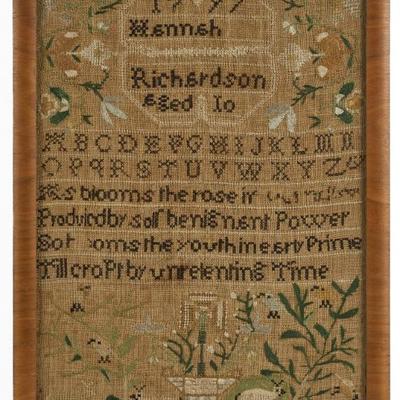 Hannah
Richardson
aged 10
ABCDEFGHIJKLMN
OPQRSTUVWXYZ&
As blooms the rose in
Producd by soft benignant Povver
So blooms the youth in early Prime
Till cropt by unrelenting Time